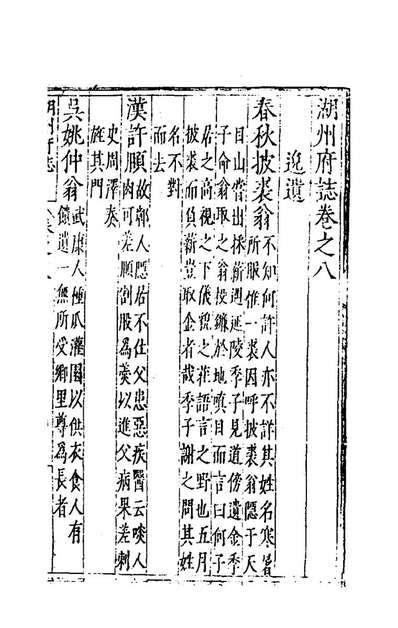 湖州府誌卷之八
逸遺
春秋披裘翁不知何許人亦不詳其姓名寒暑
所服惟一裘因呼披裘翁隱于天
目山嘗出採薪遇延陵季子見道傍遺金季
子命翁取之翁投鐮於地嗔目而言曰何子
居之高視之下儀貌之莊語言之野也五月
披裘而負薪豈取金者哉季子謝之問其姓
名不對
而去
漢許順故鄣人隱居不仕父患惡疾醫云啖人
肉可差順割股為羹以進父病果差刺
史周澤奏
旌其門
吳姚仲翁武康人種瓜灌園以供衣食人有
饋遺一無所受鄉里尊為長者